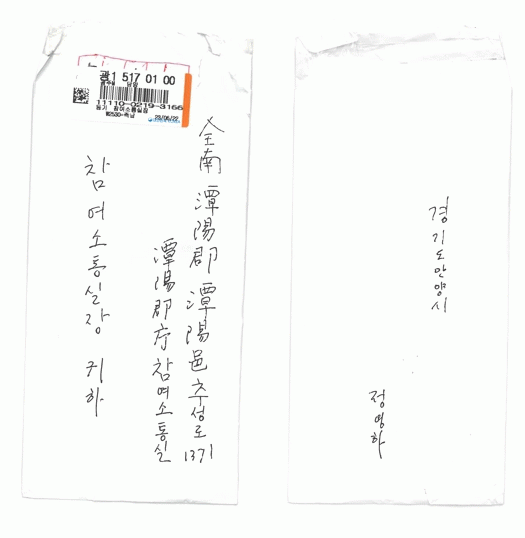 광1 517 01 00
11110-0219-3166
등기 참여소통실장
₩2530-즉납
23/06/22
全南 潭陽郡 潭陽邑 추성로 1371
潭陽郡庁 참여소통실
참여소통실장 귀하
경기도안양시
정영하